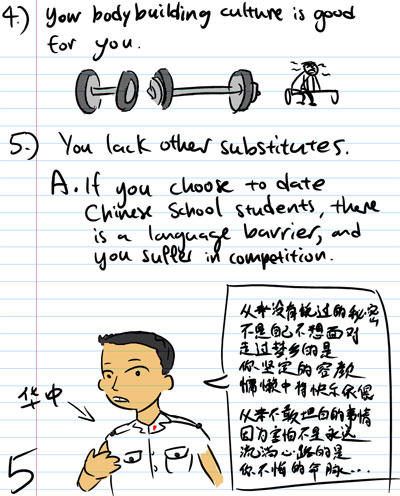 4.) Your bodybuilding culture is good
for you.
5.) You lack other substitutes.
A. If you choose to date
Chinese School students, there
is a language barrier, and
you suffer in competition.
从来没有说过的秘密
不是自己不想面对
走过梦乡的是
你坚定的容颜
慵懒中 快乐依偎
从来不敢坦白的事情
因为害怕不是永远
流淌心路的是
你不悔的 ...
华中
5